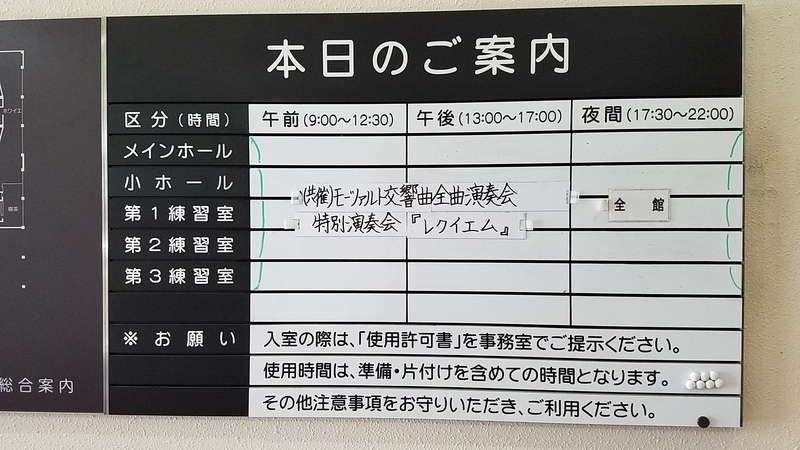 本日のご案内
区分(時間) 午前(9:00〜12:30) 午後(13:00〜17:00) 夜間(17:30〜22:00)
メインホール
小ホール
(共催)モーツァルト交響曲全曲演奏会
全館
第1練習室
特別演奏会『レクイエム』
第2練習室
第3練習室
※お願い 入室の際は、「使用許可書」を事務室でご提示ください。
使用時間は、準備・片付けを含めての時間となります。
その他注意事項をお守りいただき、ご利用ください。
ホワイエ
喫茶
総合案内